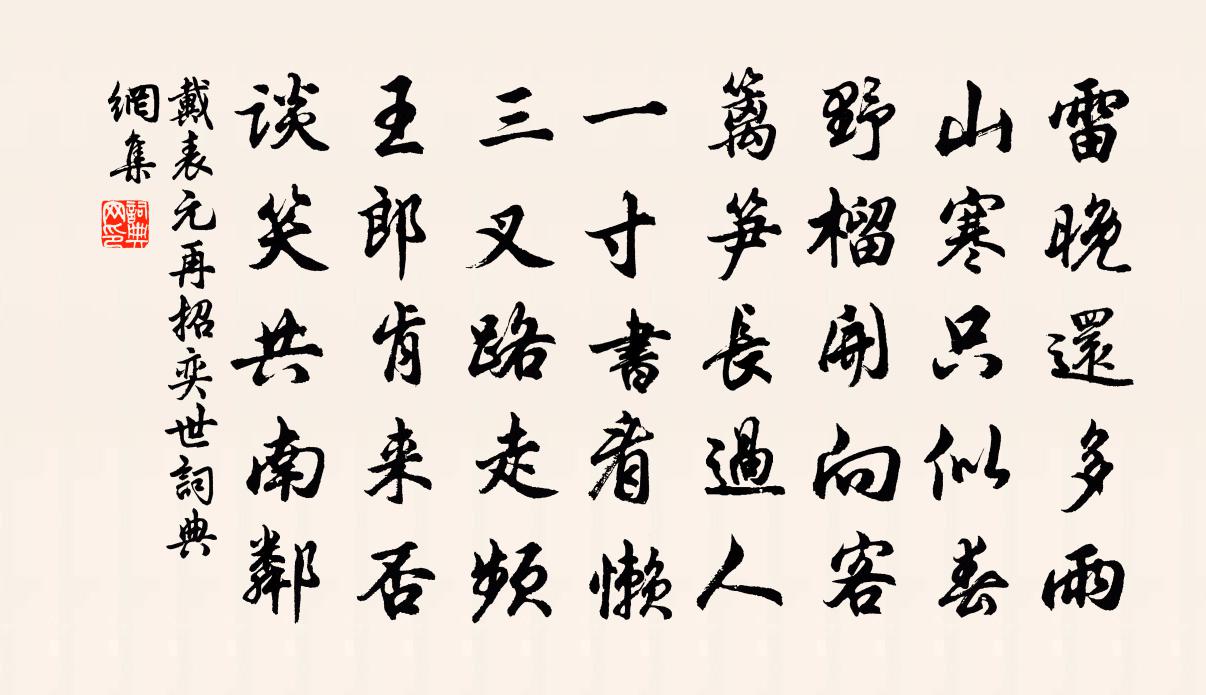 雷晚還多雨
山寒只似春
野榴開向客
籬笋長過人
一寸書看懶
三叉路走頻
王郎肯来否
谈笑共南鄰
戴表元再招奕世詞典
網集
詞典
網印